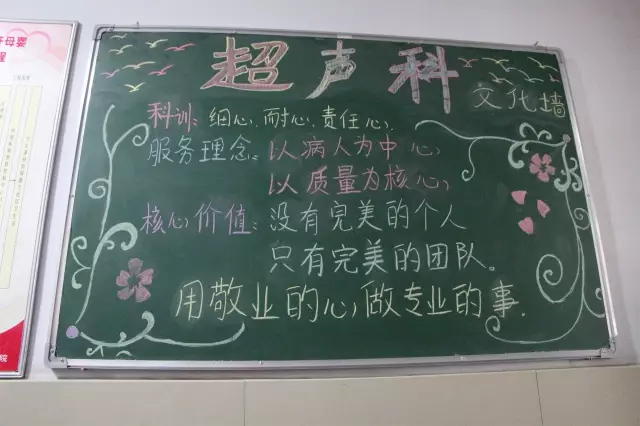 超声科
文化墙
科训：细心、耐心、责任心
服务理念：以病人为中心
以质量为核心
核心价值：没有完美的个人
只有完美的团队。
用敬业的心，做专业的事.
母婴
程
院